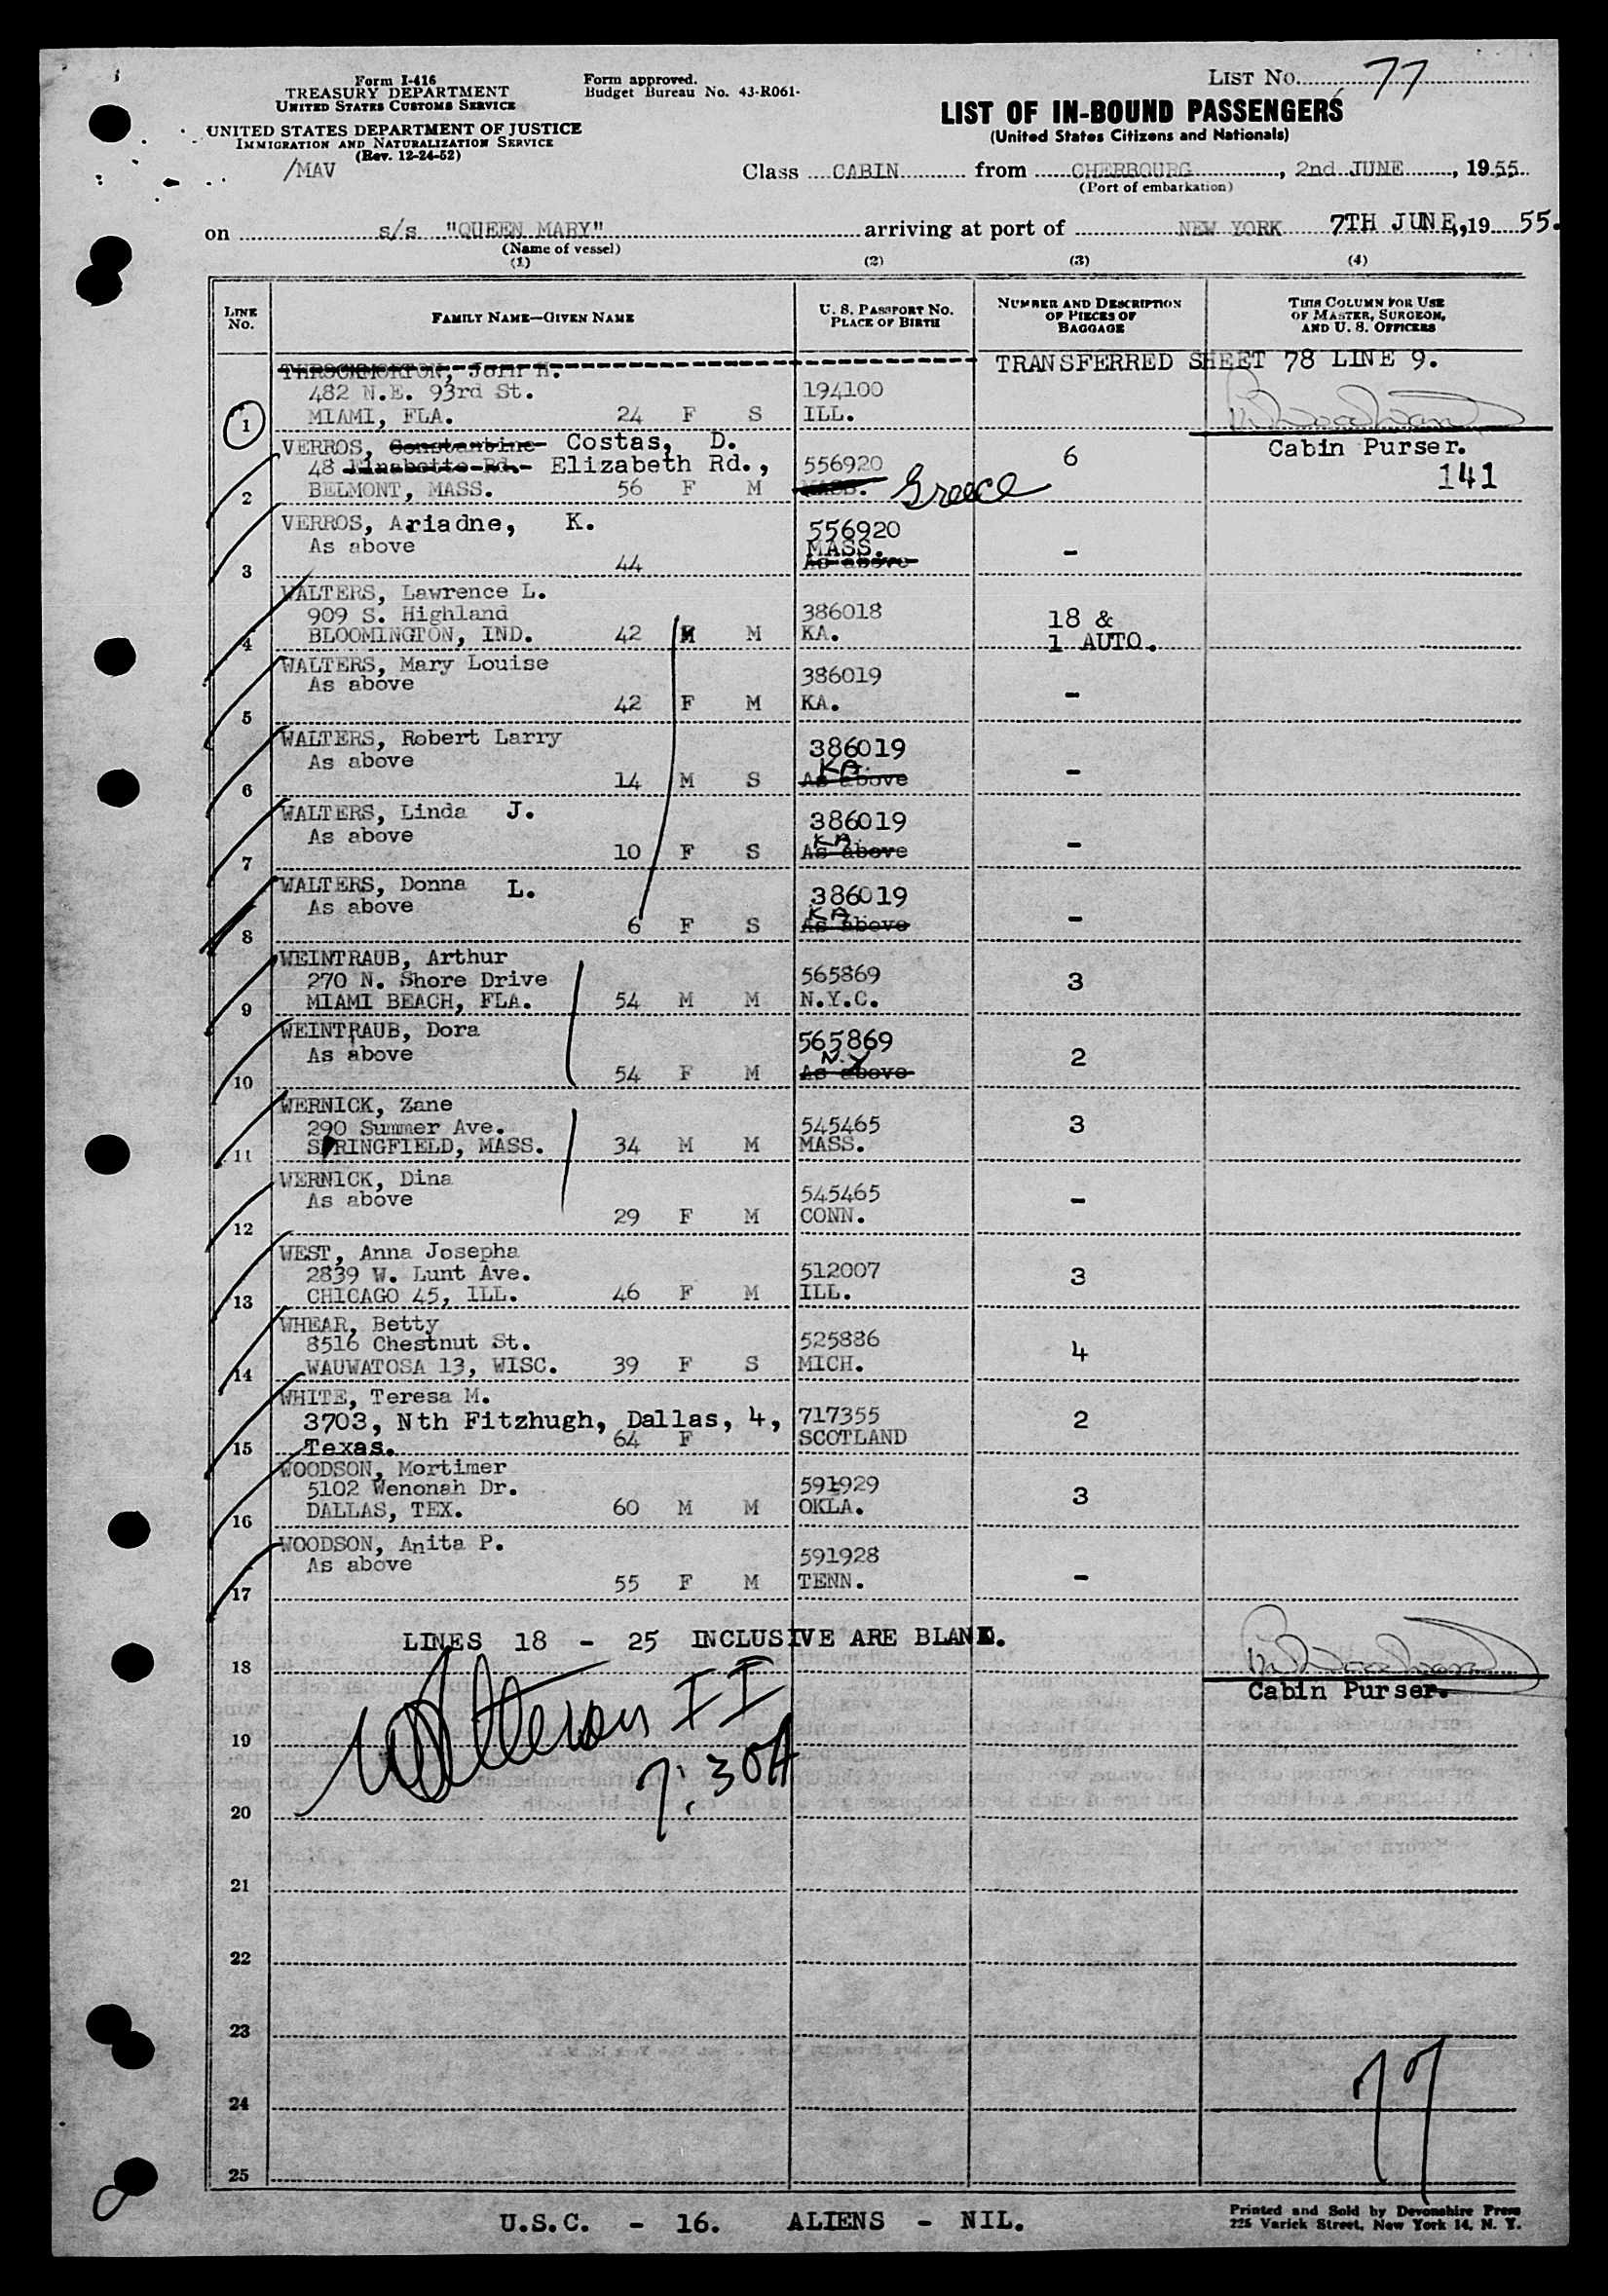 Form I-416
TREASURY DEPARTMENT
UNITED STATES CUSTOMS SERVICE
UNITED STATES DEPARTMENT OF JUSTICE
IMMIGRATION AND NATURALIZATION SERVICE
(Rev. 12-24-52)
/MAV
Form approved.
Budget Bureau No. 43-R061-
LIST NO. 77
LIST OF IN-BOUND PASSENGERS
(United States Citizens and Nationals)
Class CABIN from CHERBOURG, 2nd JUNE, 1955
(Port of embarkation)
on s/s "QUEEN MARY" arriving at port of NEW YORK 7TH JUNE, 19 55.
(Name of vessel)
(1) (2) (3) (4)
LINE NO.
FAMILY NAME—GIVEN NAME
U. S. PASSPORT NO.
PLACE OF BIRTH
NUMBER AND DESCRIPTION
OF PIECES OF
BAGGAGE
THIS COLUMN FOR USE
OF MASTER, SURGEON,
AND U. S. OFFICERS
THROCKMORTON, John H. TRANSFERRED SHEET 78 LINE 9.
482 N.E. 93rd St. 194100
1 MIAMI, FLA. 24 F S ILL.
VERROS, Constantine Costas, D. Cabin Purser.
48 Elizabeth Rd., 556920 6
2 BELMONT, MASS. 56 F M MASS. Greece 141
VERROS, Ariadne, K. 556920
As above MASS. -
3 44 As above
WALTERS, Lawrence L.
909 S. Highland 386018 18 &
4 BLOOMINGTON, IND. 42 M M KA. 1 AUTO.
WALTERS, Mary Louise
As above 386019 -
5 42 F M KA.
WALTERS, Robert Larry 386019
As above KA. -
6 14 M S As above
WALTERS, Linda J. 386019
As above KA. -
7 10 F S As above
WALTERS, Donna L. 386019
As above KA -
8 6 F S As above
WEINTRAUB, Arthur
270 N. Shore Drive 565869 3
9 MIAMI BEACH, FLA. 54 M M N.Y.C.
WEINTRAUB, Dora 565869
As above N.Y 2
10 54 F M As above
WERNICK, Zane
290 Summer Ave. 545465 3
11 SPRINGFIELD, MASS. 34 M M MASS.
WERNICK, Dina
As above 545465 -
12 29 F M CONN.
WEST, Anna Josepha
2839 W. Lunt Ave. 512007 3
13 CHICAGO 45, ILL. 46 F M ILL.
WHEAR, Betty
8516 Chestnut St. 525886 4
14 WAUWATOSA 13, WISC. 39 F S MICH.
WHITE, Teresa M.
3703, Nth Fitzhugh, Dallas, 4, 717355 2
15 Texas. 64 F SCOTLAND
WOODSON, Mortimer
5102 Wenonah Dr. 591929 3
16 DALLAS, TEX. 60 M M OKLA.
WOODSON, Anita P.
As above 591928 -
17 55 F M TENN.
LINES 18 - 25 INCLUSIVE ARE BLANK.
18
Cabin Purser.
II
19
7:30A
20
21
22
23
24
77
25
U.S.C. - 16. ALIENS - NIL.
Printed and Sold by Devonshire Press
225 Varick Street, New York 14, N. Y.